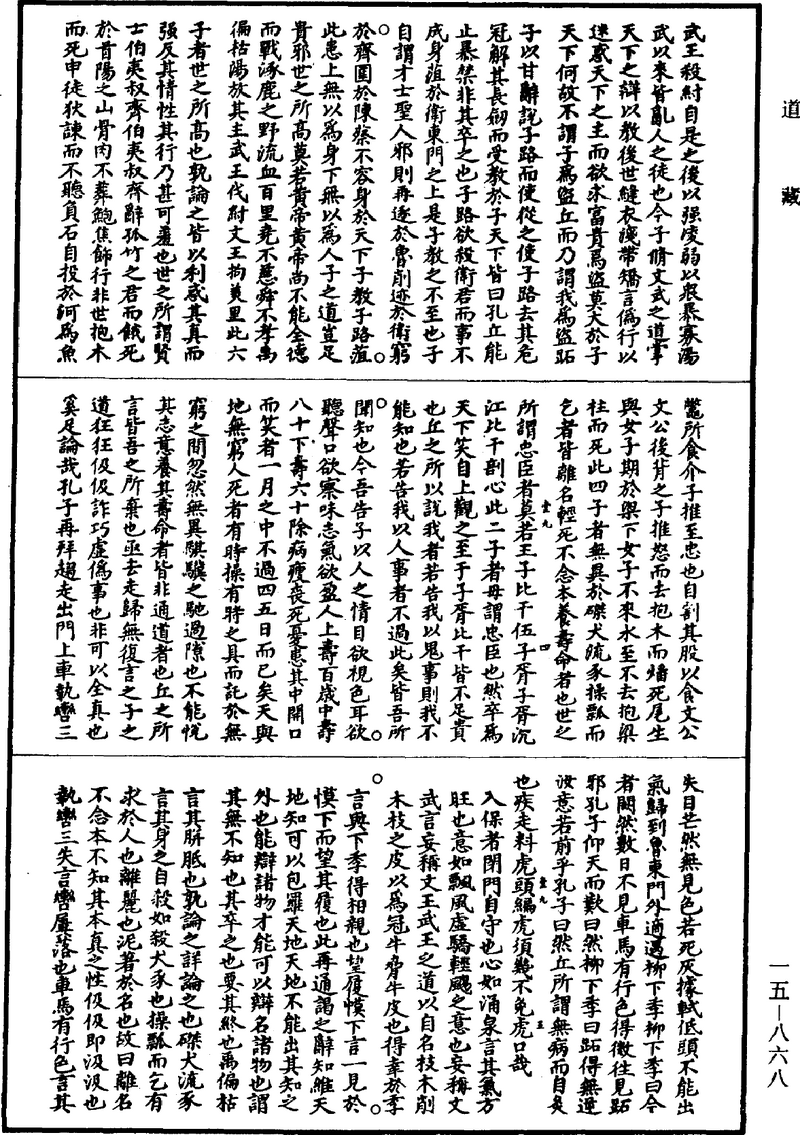 道藏
武王殺紂自是之後以强凌弱以衆暴寡湯
武以來皆亂人之徒也今子脩文武之道掌
天下之辯以教後世縫衣淺帶矯言僞行以
迷惑天下之主而欲求富貴焉盜莫大於子
天下何故不謂子爲盜丘而乃謂我爲盜跖
子以甘辭說子路而使從之使子路去其危
冠解其長劒而受教於子天下皆曰孔丘能
止暴禁非其卒之也子路欲殺衛君而事不
成身菹於衛東門之上是子教之不至也子
自謂才士聖人邪則再逐於魯削迹於衛窮
於齊圍於陳蔡不容身於天下子教子路菹
此患上無以爲身下無以爲人子之道豈足
貴邪世之所高莫若黄帝黄帝尚不能全德
而戰涿鹿之野流血百里堯不慈舜不孝禹
偏枯湯放其主武王伐紂文王拘羑里此六
子者世之所高也孰論之皆以利惑其真而
强反其情性其行乃甚可羞也世之所謂賢
士伯夷叔齊伯夷叔齊辭孤竹之君而餓死
於首陽之山骨肉不葬鮑焦飾行非世抱木
而死申徒狄諫而不聽負石自投於河爲魚
鼈所食介子推至忠也自割其股以食文公
文公後背之子推怒而去抱木而燔死尾生
與女子期於梁下女子不來水至不去抱梁
柱而死此四子者無異於磔犬流豕操瓢而
乞者皆離名輕死不念本養壽命者也世之
所謂忠臣者莫若王子比干伍子胥子胥沉
江比干剖心此二子者毋謂忠臣也然卒爲
天下笑自上觀之至于子胥比干皆不足貴
也丘之所以說我者若告我以鬼事則我不
能知也若告我以人事者不過此矣皆吾所
聞知也今吾告子以人之情目欲視色耳欲
聽聲口欲察味志氣欲盈人上壽百歲中壽
八十下壽六十除病瘦喪死憂患其中開口
而笑者一月之中不過四五日而已矣天與
地無窮人死者有時操有時之具而託於無
窮之間忽然無異騏驥之馳過隙也不能悅
其志意養其壽命者皆非通道者也丘之所
言皆吾之所棄也亟去走歸無復言之子之
道狂狂伋伋詐巧虛僞事也非可以全真也
奚足論哉孔子再拜趨走出門上車執轡三
失目茫然無見色若死灰據軾低頭不能出
氣歸到魯東門外適遇柳下季柳下季曰今
者闕然數日不見車馬有行色得微往見跖
邪孔子仰天而歎曰然柳下季曰跖得無逆
汝意若前乎孔子曰然丘所謂無病而自灸
也疾走料虎頭編虎須幾不免虎口哉
入保者閉門自守也心如涌泉言其氣方
旺也意如飄風虛驕輕颺之意也妄稱文
武言妄稱文王武王之道以自名枝木削
木枝之皮以爲冠牛脅牛皮也得幸於季
言與下季得相親也望履幕下言一見於
幕下而望其履也此再通謁之辭知維天
地知可以包羅天地天地不能出其知之
外也能辯諸物才能可以辯名諸物也謂
其無不知也其卒之也要其終也禹偏枯
言其胼胝也孰論之詳論之也磔犬流豕
言其身之自殺如殺犬豕也操瓢而乞有
求於人也離麗也泥著於名也故曰離名
不念本不知其本真之性伋伋即汲汲也
執轡三失言轡屢落也車馬有行色言其
一五—八六八